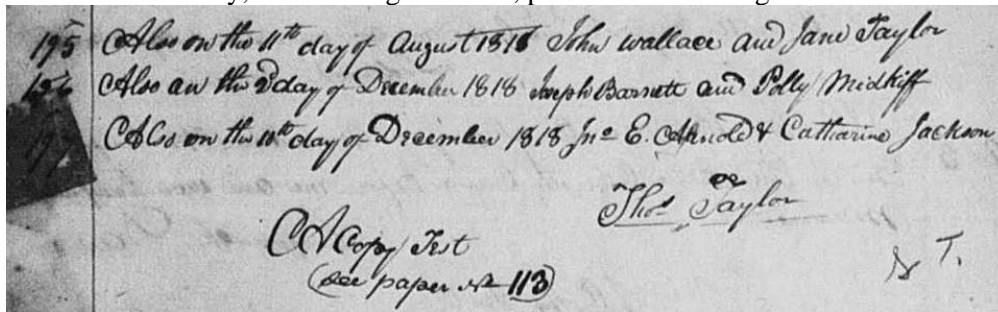 195 Also on the 11th day of August 1818 John Wallace and Jane Taylor
196 Also on the 2d day of December 1818 Joseph Barnett and Polly Midkiff
197 Also on the 10th day of December 1818 Jno E. Arnold & Catharine Jackson
Thos Taylor
A Copy Test
(see paper No 113)